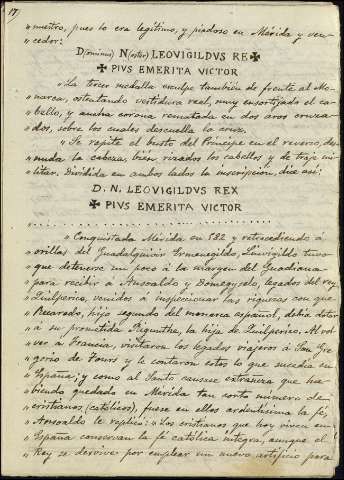 17
" nuestro, pues lo era legítimo, y piadoso en Mérida y ven-
" cedor:
D(ominus) N(oster) LEOVIGILDVS RE✠
✠ PIVS EMERITA VICTOR
" La tercer medalla esculpe también de frente al Mo-
" narca, ostentando vestidura real, muy ensortijado el ca-
" bello, y ancha corona rematada en dos aros cruza-
" dos, sobre los cuales descuella la cruz.
" Se repite el busto del Príncipe en el reverso, des-
" nuda la cabeza, bien rizados los cabellos y de traje mi-
" litar. Dividida en ambos lados la inscripción, dice así:
D. N. LEOVIGILDVS REX
✠ PIVS EMERITA VICTOR
" Conquistada Mérida en 582 y retrocediendo á
" orillas del Guadalquivir Ermenegildo, Leuvigildo tuvo
" que detenerse un poco á la margen del Guadiana
" para recibir á Ansoaldo y Domegyselo, legados del rey
" Quilperico, venidos á inspeccionar las riquezas con que
" Recaredo, hijo segundo del monarca español, debía dotar
" á su prometida Rigunthe, la hija de Quilperico. Al vol-
" ver á Francia, visitaron los legados viajeros á San Gre-
" gorio de Tours y le contaron estos lo que sucedía en
" España; y como al Santo causase extrañeza que ha-
" biendo quedado en Mérida tan corto número de
" cristianos (católicos), fuese en ellos ardentísima la fe,
" Ansoaldo le replicó: "Los cristianos que hoy viven en
" España conservan la fé católica íntegra, aunque el
" Rey se desvive por emplear un nuevo artificio para